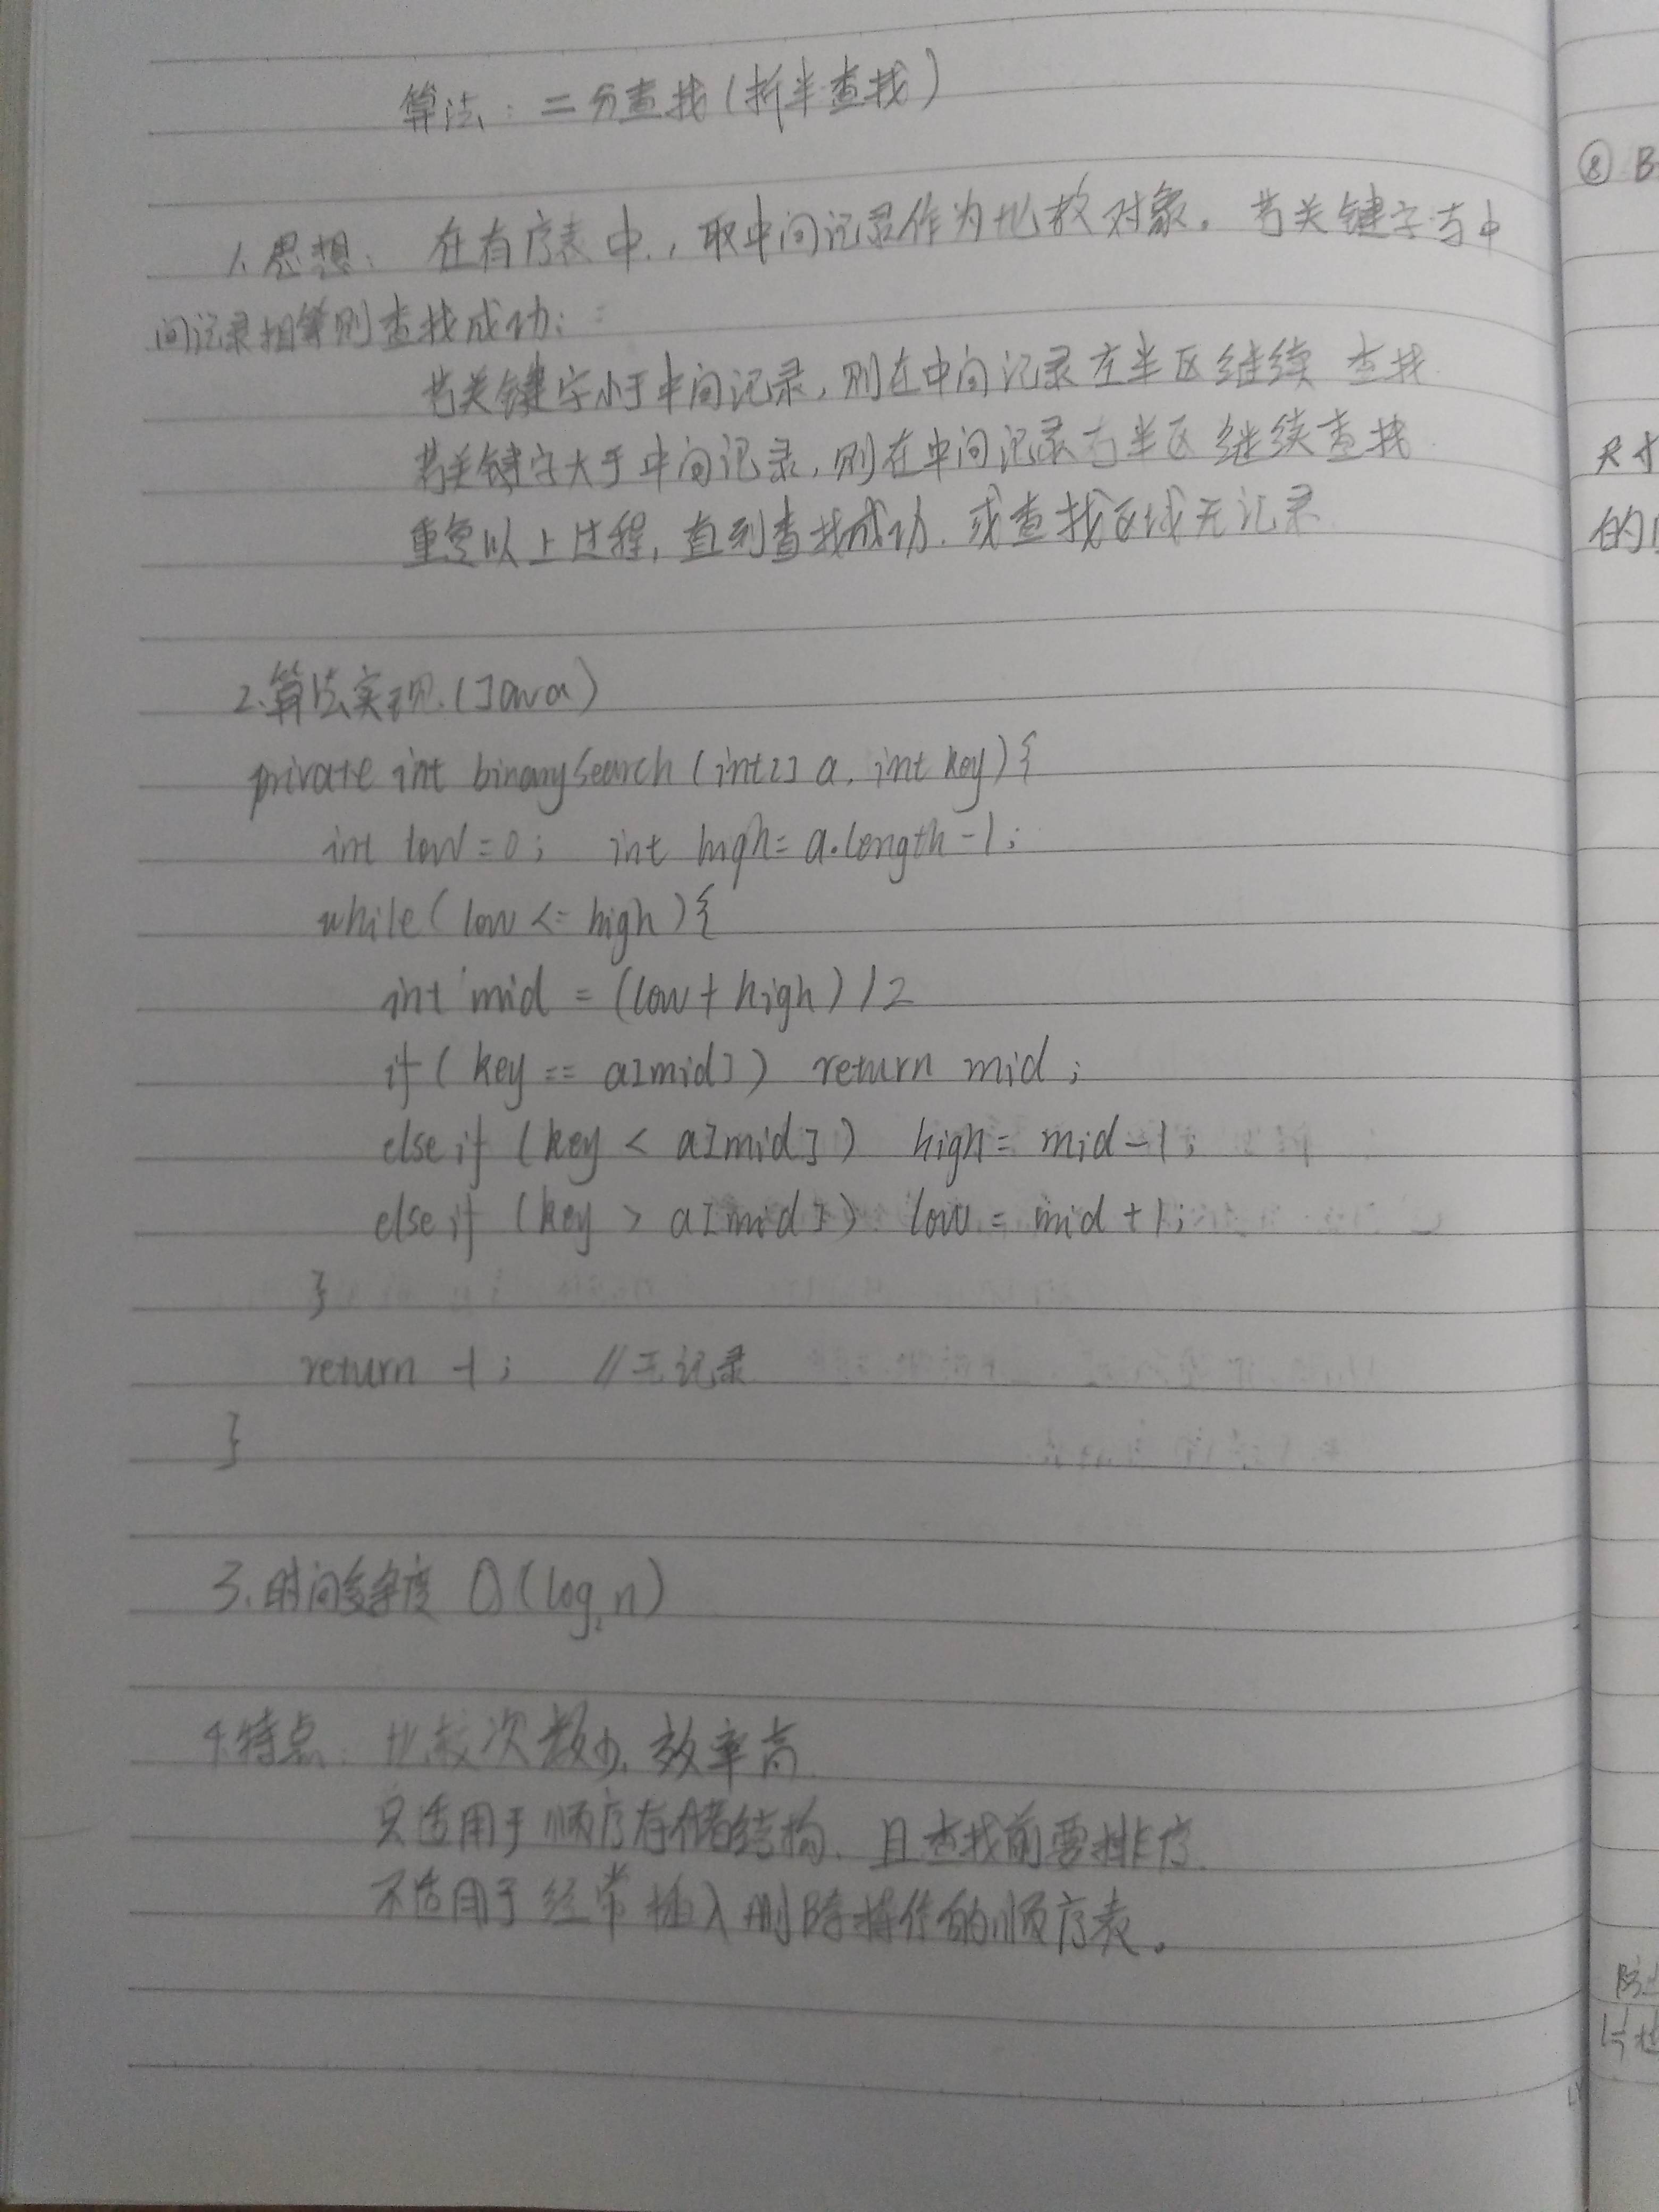 算法：二分查找(折半查找)
1.思想：在有序表中，取中间记录作为比较对象。若关键字与中
间记录相等则查找成功；
若关键字小于中间记录，则在中间记录左半区继续 查找
若关键字大于中间记录，则在中间记录右半区继续查找
重复以上过程，直到查找成功.或查找区域无记录
2.算法实现.(Java)
private int binarySearch(int[] a, int key){
int low=0; int high=a.length-1;
while(low<=high){
int mid = (low+high)/2
if(key == a[mid]) return mid;
else if (key < a[mid]) high = mid-1;
else if (key > a[mid]) low = mid+1;
}
return -1; //无记录
}
3.时间复杂度 O(log₂n)
4.特点：比较次数少,效率高.
只适用于顺序存储结构、且查找前要排序.
不适用于经常插入删除操作的顺序表。
⑧ B
尺寸
的